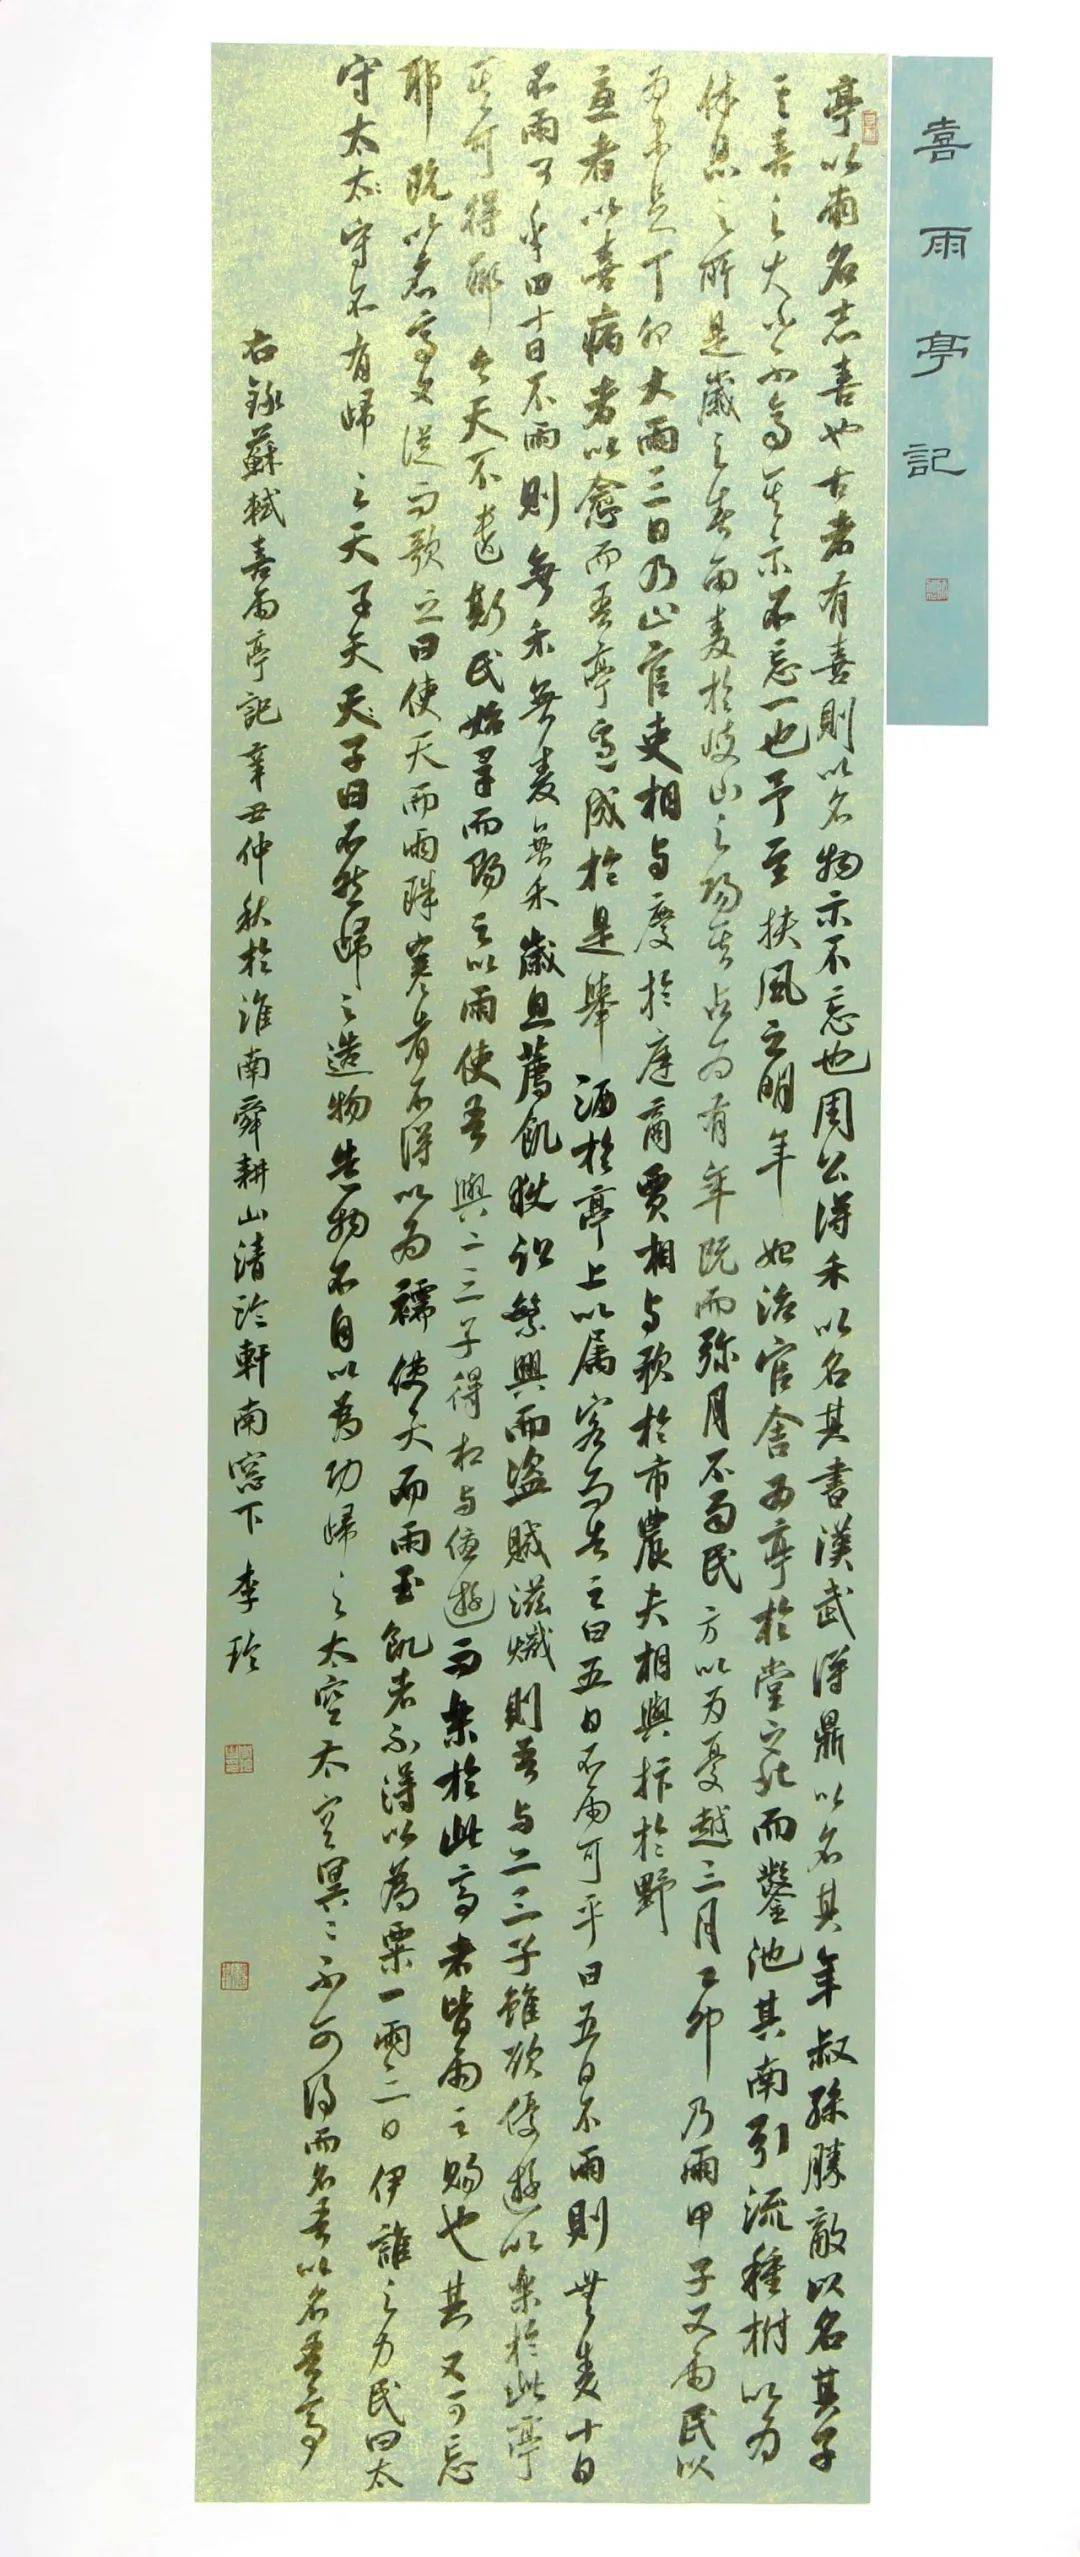 喜雨亭記
亭以雨名志喜也古者有喜則以名物示不忘也周公得禾以名其書漢武得鼎以名其年叔孫勝敵以名其子
其喜之大小不齊其示不忘一也予至扶風之明年始治官舍為亭於堂之北而鑿池其南引流種樹以為
休息之所是歲之春雨麦於岐山之陽其占為有年既而弥月不雨民方以為憂越三月乙卯乃雨甲子又雨民以
為未足丁卯大雨三日乃止官吏相与慶於庭商賈相与歌於市農夫相與抃於野
憂者以喜病者以愈而吾亭適成於是舉酒於亭上以属客而告之曰五日不雨可乎曰五日不雨則無麦十日
不雨可乎曰十日不雨則無禾無麦無禾歲且薦飢獄訟繁興而盜賊滋熾則吾与二三子雖欲優遊以樂於此亭
其可得耶今天不遺斯民始旱而賜之以雨使吾與二三子得相与優遊而樂於此亭者皆雨之賜也其又可忘
耶既以名亭又從而歌之曰使天而雨珠寒者不得以為襦使天而雨玉飢者不得以為粟一雨三日伊誰之力民曰太
守太太守不有歸之天子天天子曰不然歸之造物造物不自以為功歸之太空太空冥冥不可得而名吾以名吾亭
右錄蘇軾喜雨亭記辛丑仲秋於淮南舜耕山清玲軒南窓下李玲